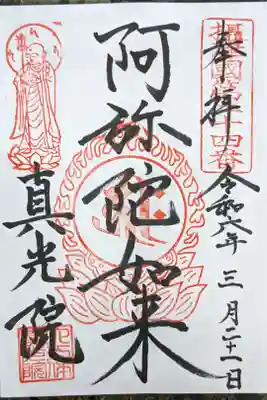 奉拝
令和六年 三月二十一日
阿弥陀如来
真光院